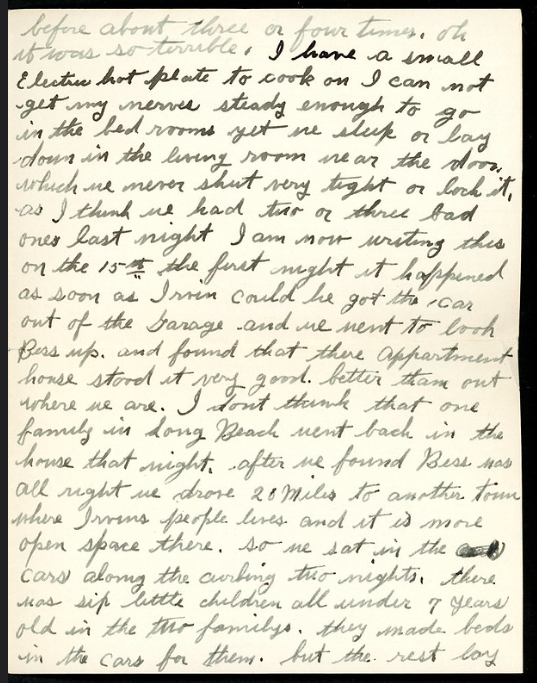 before about three or four times. oh
it was so terrible. I have a small
Electric hot plate to cook on I can not
get my nerves steady enough to go
in the bed rooms yet we sleep or lay
down in the living room near the door,
which we never shut very tight or lock it,
as I think we had two or three bad
ones last night I am now writing this
on the 15th the first night it happened
as soon as Irvin could he got the car
out of the Garage and we went to look
Bess up. and found that there Appartment
house stood it very good. better than out
where we are. I dont think that one
family in Long Beach went back in the
house that night. after we found Bess was
all right we drove 20 Miles to another town
where Irvins people lives and it is more
open space there. so we sat in the
cars along the curbing two nights. there
was six little children all under 7 years
old in the two familys. they made beds
in the cars for them. but the rest lay